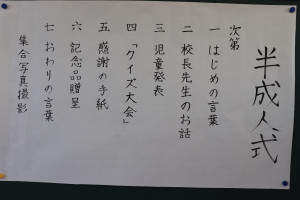 半成人式
次第
一 はじめの言葉
二 校長先生のお話
三 児童発表
四 「クイズ大会」
五 感謝の手紙
六 記念品贈呈
七 おわりの言葉
集合写真撮影